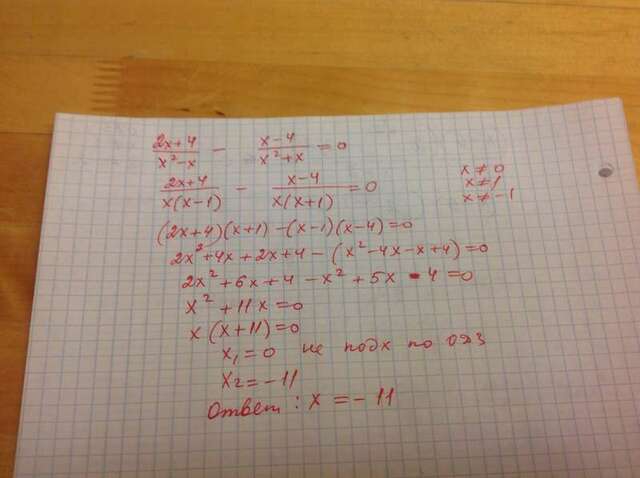 (2x+4)/(x²-x) - (x-4)/(x²+x) = 0
(2x+4)/(x(x-1)) - (x-4)/(x(x+1)) = 0
x≠0
x≠1
x≠-1
(2x+4)(x+1)-(x-1)(x-4)=0
2x²+4x+2x+4-(x²-4x-x+4)=0
2x²+6x+4-x²+5x-4=0
x²+11x=0
x(x+11)=0
x₁=0 не подх по одз
x₂=-11
Ответ: x=-11